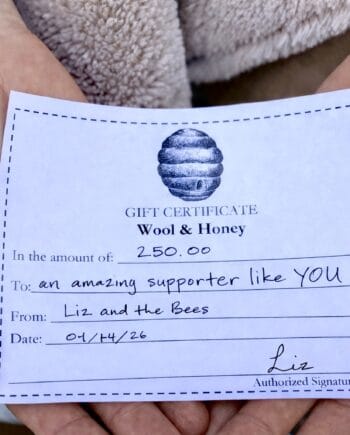 GIFT CERTIFICATE
Wool & Honey
In the amount of: 250.00
To: an amazing supporter like YOU
From: Liz and the Bees
Date: 04/14/26
Liz
Authorized Signatu